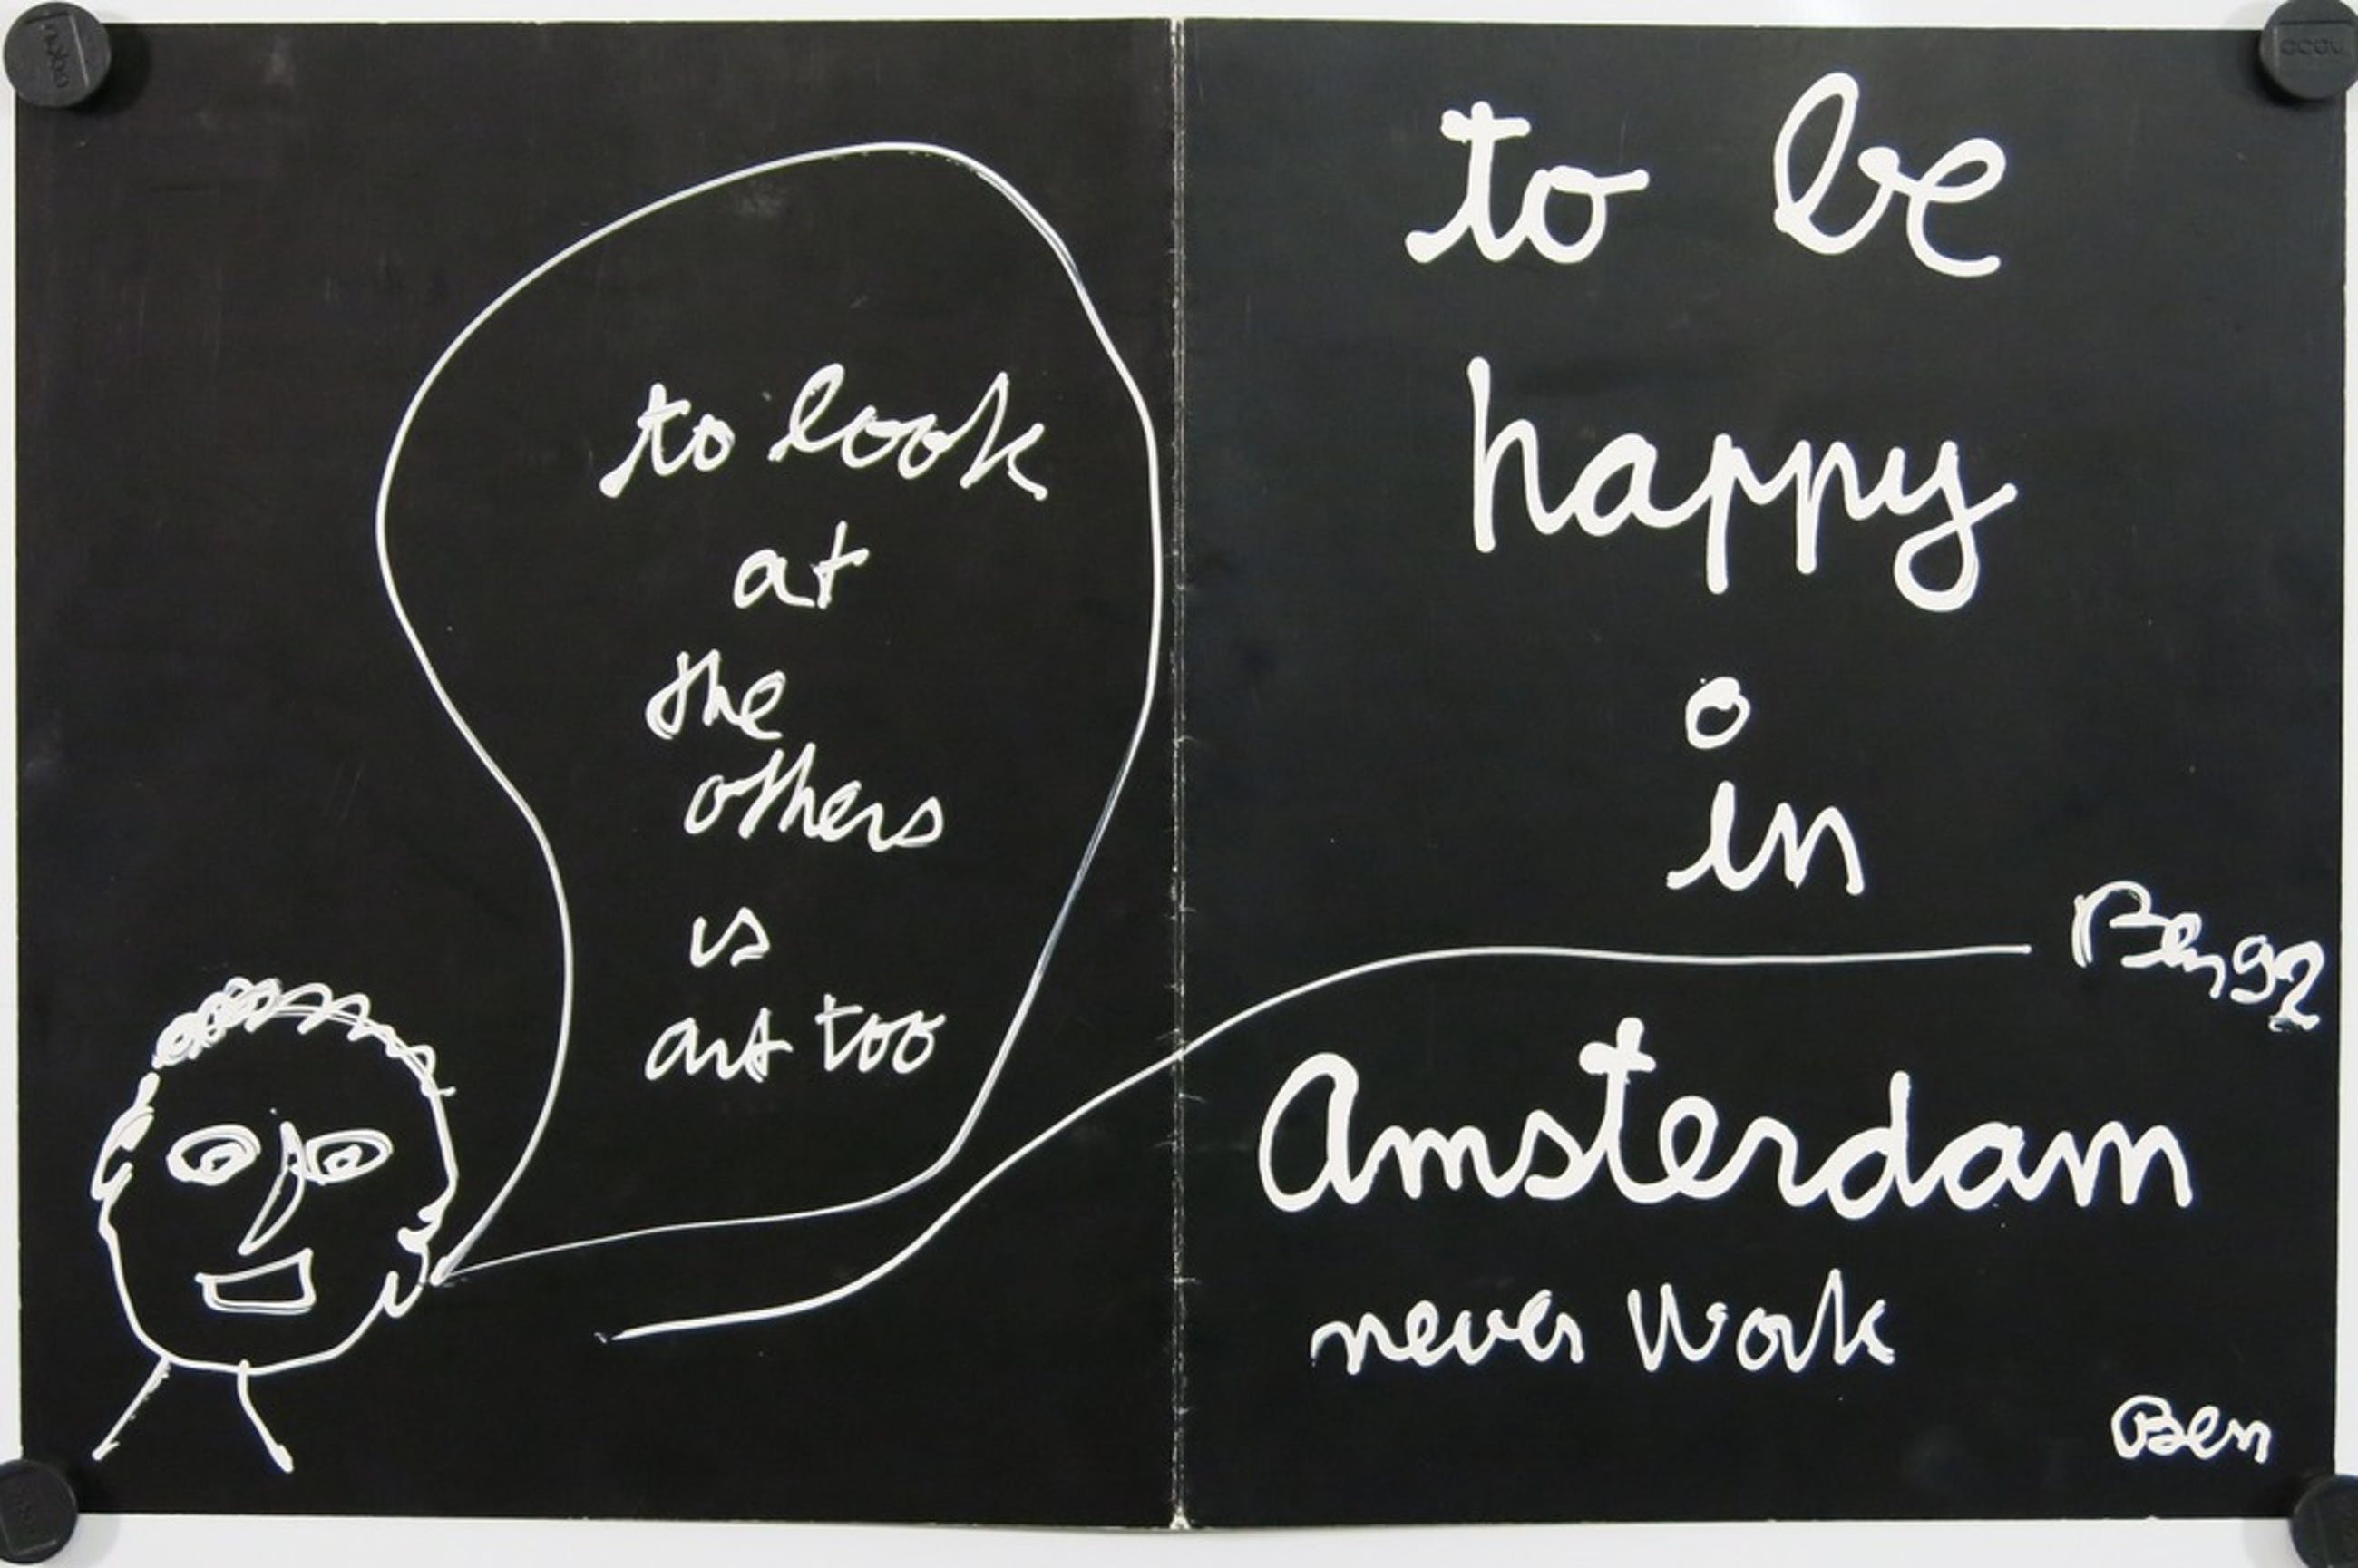 to look
at
the
others
is
art too
to be
happy
in
Ben 92
Amsterdam
never Work
Ben